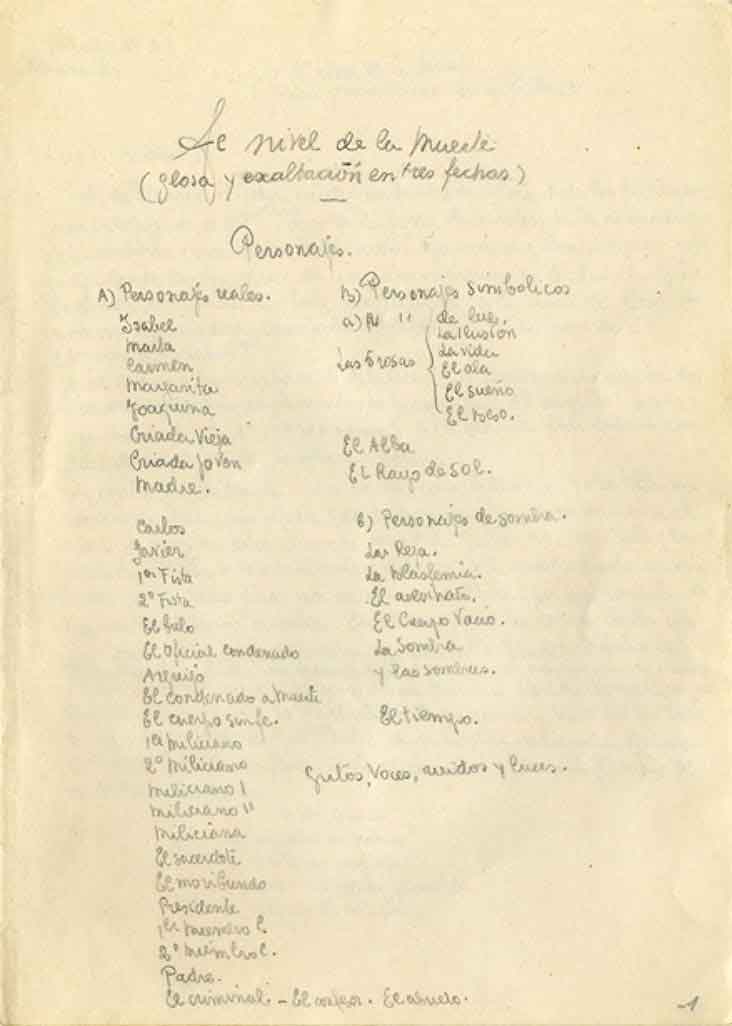 Al nivel de la Muerte
(glosa y exaltación en tres fechas)
Personajes.
A) Personajes reales.
Isabel
Marta
Carmen
Margarita
Joaquina
Criada Vieja
Criada Joven
Madre.
Carlos
Javier
1er Fista
2º Fista
El Oficial condenado
El condenado a Muerte
El cuerpo sin fe.
1er Miliciano
2º Miliciano
Miliciano I
Miliciano II
Miliciana
El sacerdote
El moribundo
Presidente
1er Miembro C.
2º Miembro C.
Padre.
El criminal - El confesor. El abuelo.
B) Personajes simbólicos
a) P. " de luz.
Las 5 rosas
La Ilusión
La vida
El ala
El sueño
El beso.
El Alba
El Rayo de Sol.
b) Personajes de sombra.
La blasfemia.
El asesinato.
El Cuerpo Vacío.
La Sombra
y las sombras.
El tiempo.
Gritos, Voces, ruidos y luces.
1